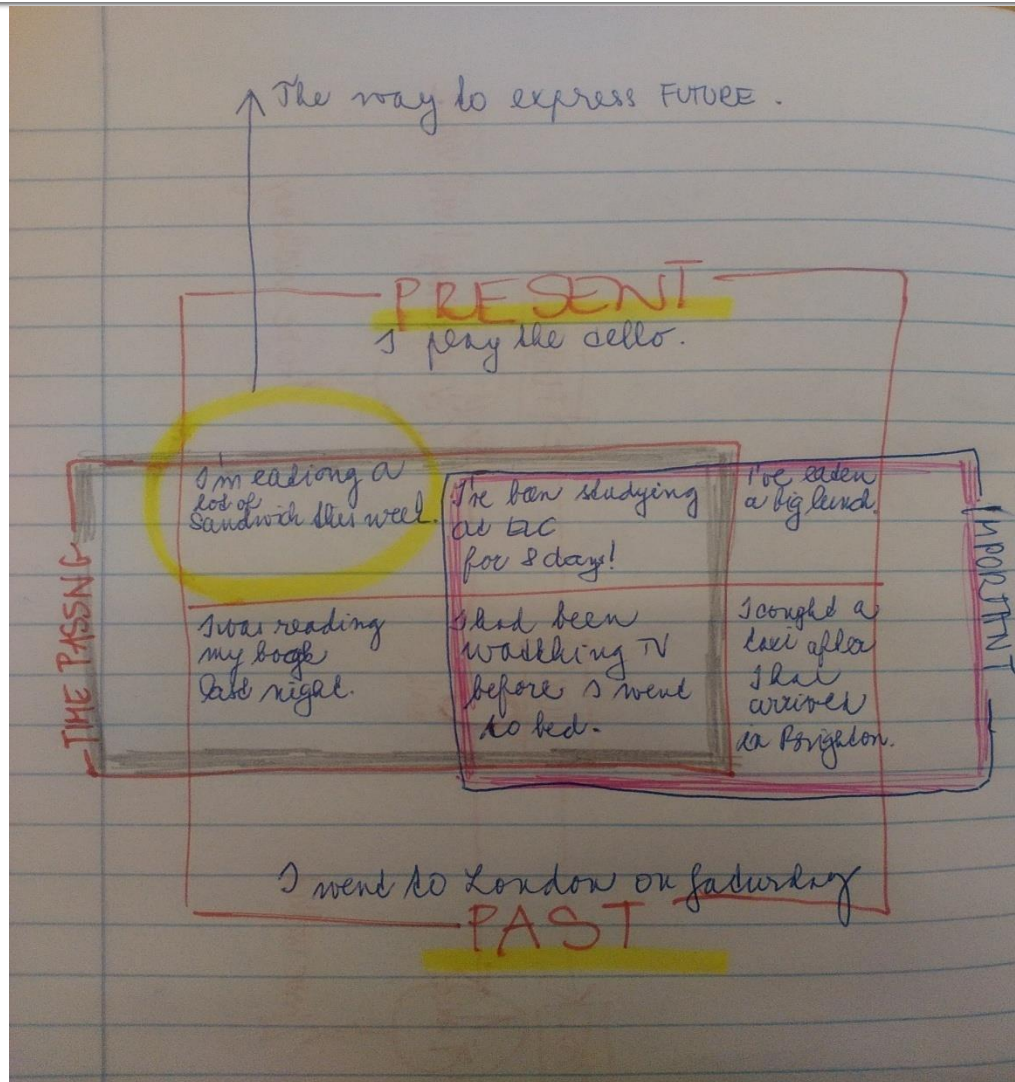 The way to express FUTURE.
PRESENT
I play the cello.
I'm eationg a
lot of
Sandwich this week.
I've been studying
at ELC
for 8 days!
I've eaten
a big lunch.
TIME PASSNG
INPORTANT
I was reading
my book
last night.
I had been
watching TV
before I went
to bed.
I cought a
taxi after
I had
arrived
in Brighton.
I went to London on Saturday
PAST